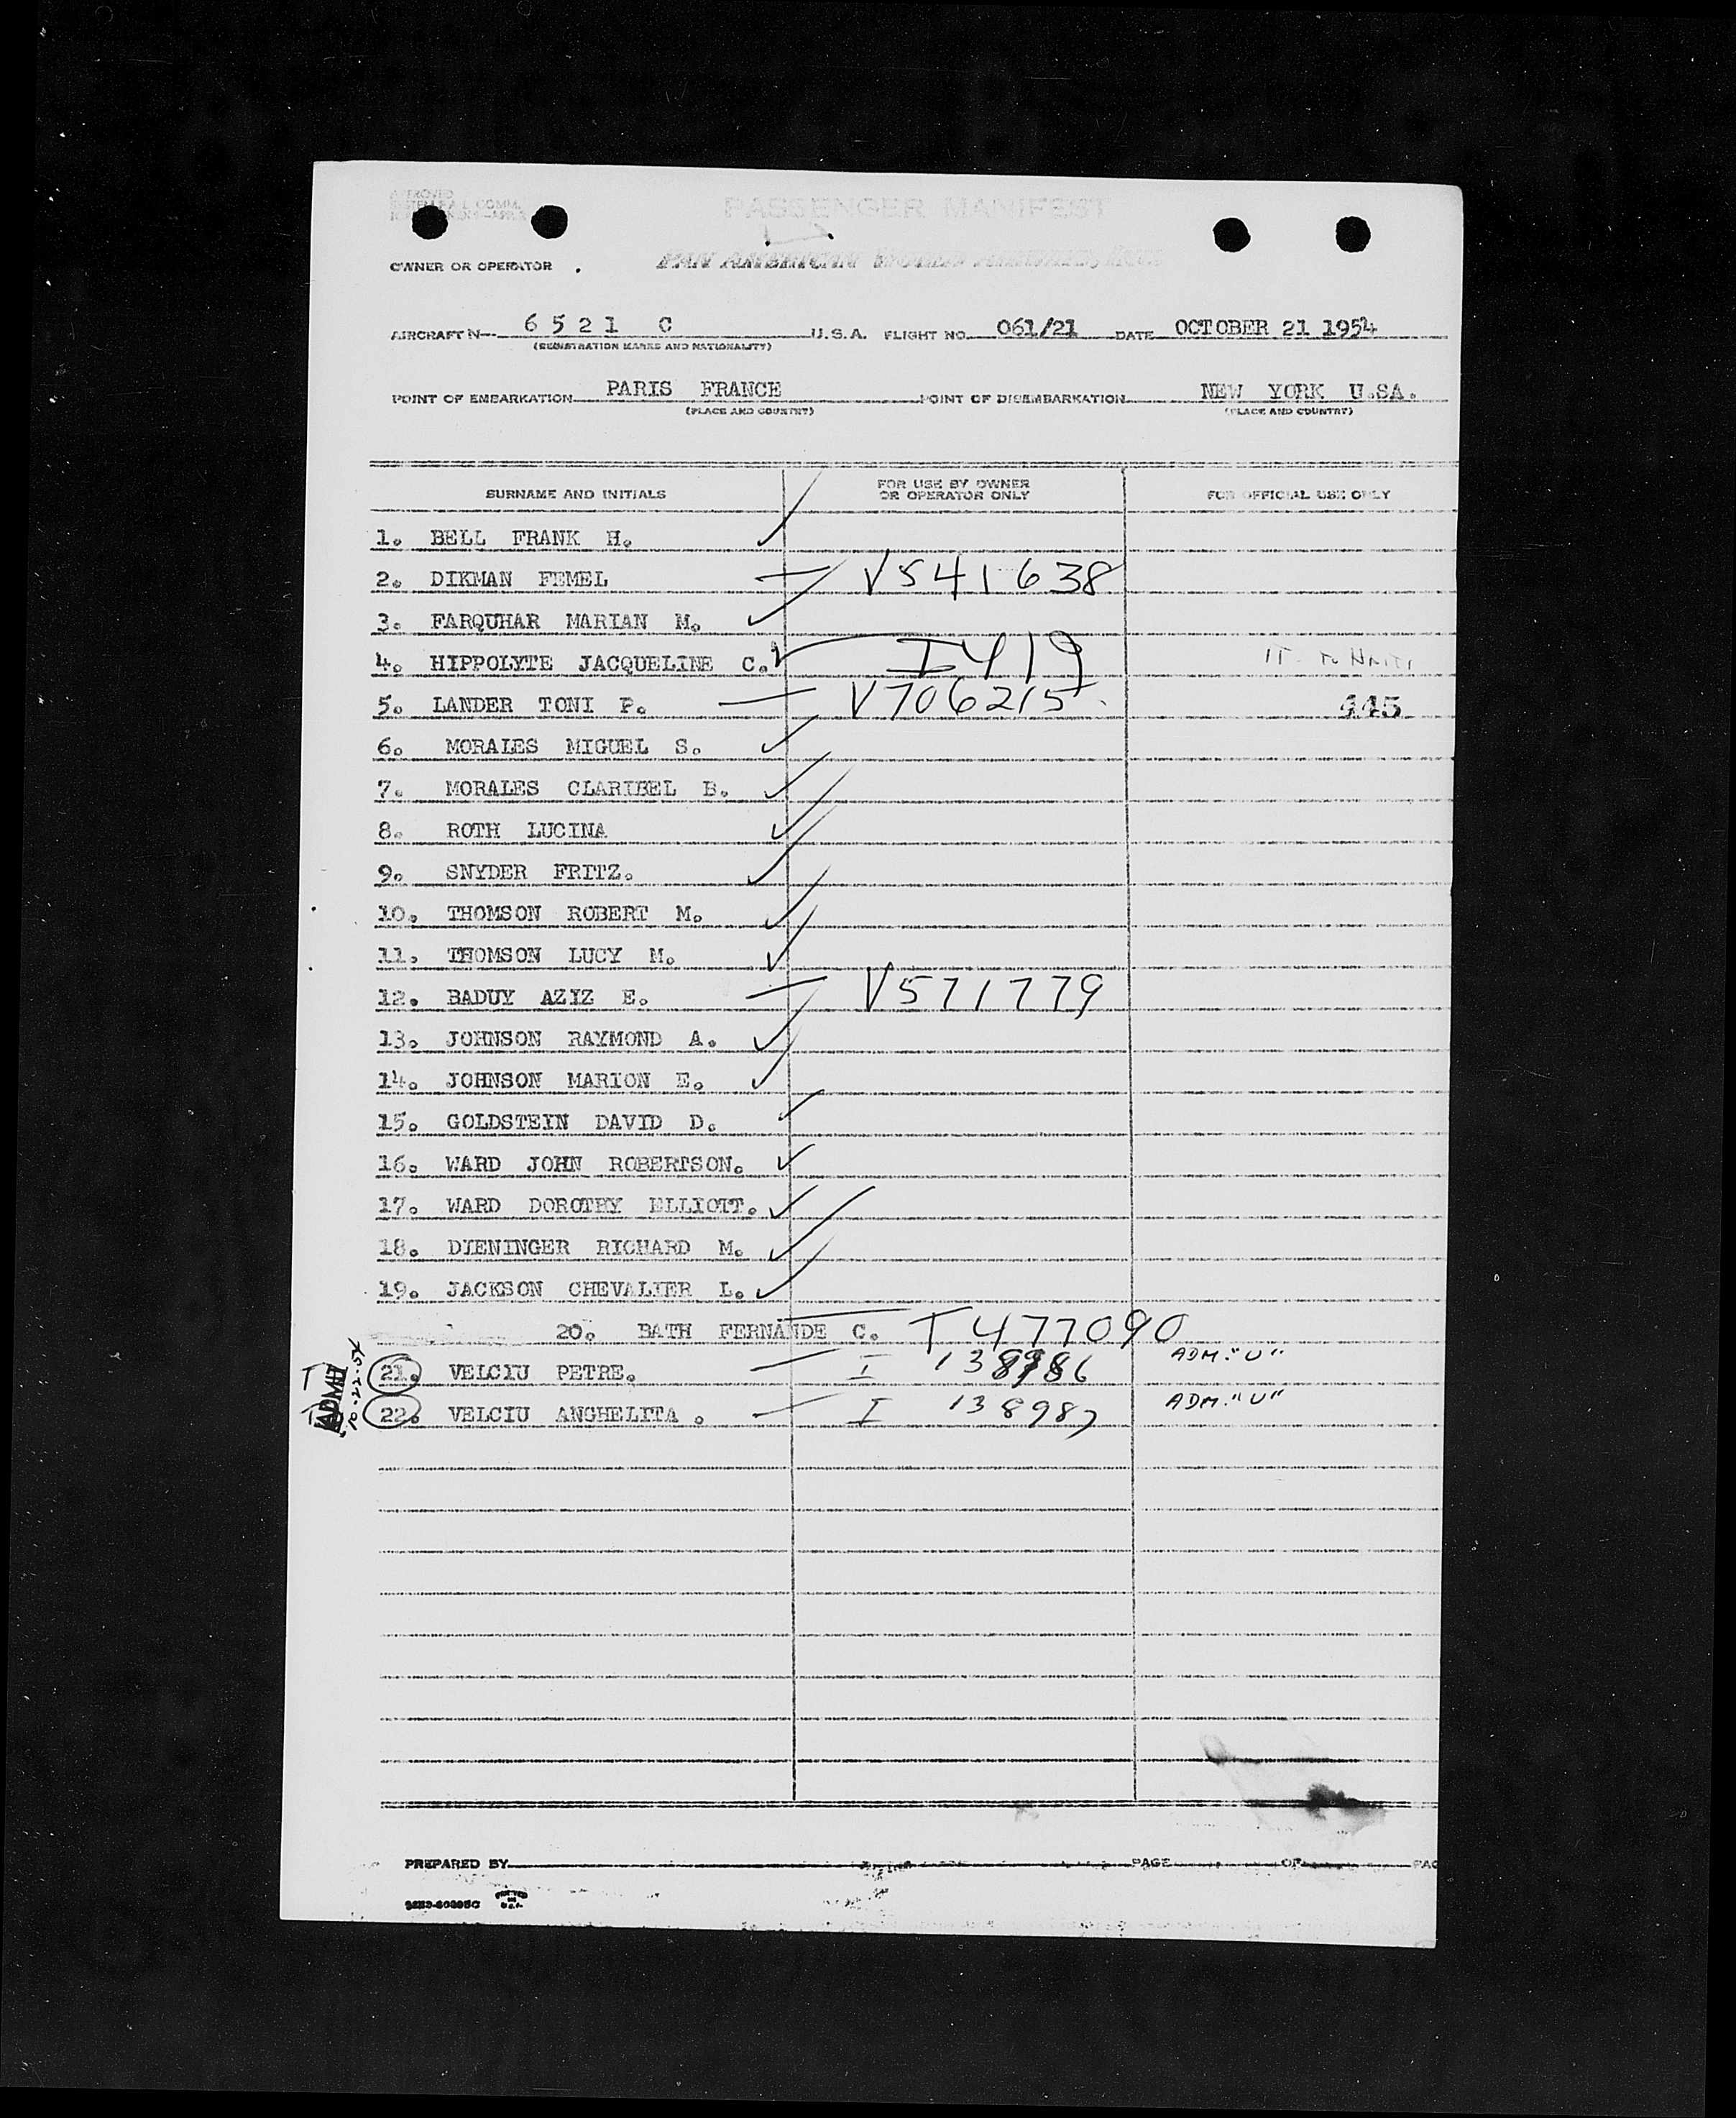 APPROVED
PASSENGER MANIFEST
OWNER OR OPERATOR . PAN AMERICAN WORLD AIRWAYS, INC.
AIRCRAFT N- 6521 C U.S.A. FLIGHT NO. 061/21 DATE OCTOBER 21 1954
(REGISTRATION MARKS AND NATIONALITY)
POINT OF EMBARKATION PARIS FRANCE POINT OF DISEMBARKATION NEW YORK U.SA.
(PLACE AND COUNTRY) (PLACE AND COUNTRY)
SURNAME AND INITIALS FOR USE BY OWNER OR OPERATOR ONLY FOR OFFICIAL USE ONLY
1. BELL FRANK H. ✓
2. DIKMAN FEMEL — V541638
3. FARQUHAR MARIAN M. ✓
4. HIPPOLYTE JACQUELINE C. ✓ I419 IT. TO HAITI
5. LANDER TONI P. — V706215 445
6. MORALES MIGUEL S. ✓
7. MORALES CLARIBEL B. ✓
8. ROTH LUCINA ✓
9. SNYDER FRITZ. ✓
10. THOMSON ROBERT M. ✓
11. THOMSON LUCY M. ✓
12. BADUY AZIZ E. — V571779
13. JOHNSON RAYMOND A. ✓
14. JOHNSON MARION E. ✓
15. GOLDSTEIN DAVID D. ✓
16. WARD JOHN ROBERTSON. ✓
17. WARD DOROTHY ELLIOTT. ✓
18. DIENINGER RICHARD M. ✓
19. JACKSON CHEVALIER L. ✓
20. BATH FERNANDE C. — T477090
21. VELCIU PETRE. — I 138986 ADM. "U"
22. VELCIU ANGHELITA . — I 138987 ADM. "U"
ADMIT
10-22-54
PREPARED BY PAGE OF PAG